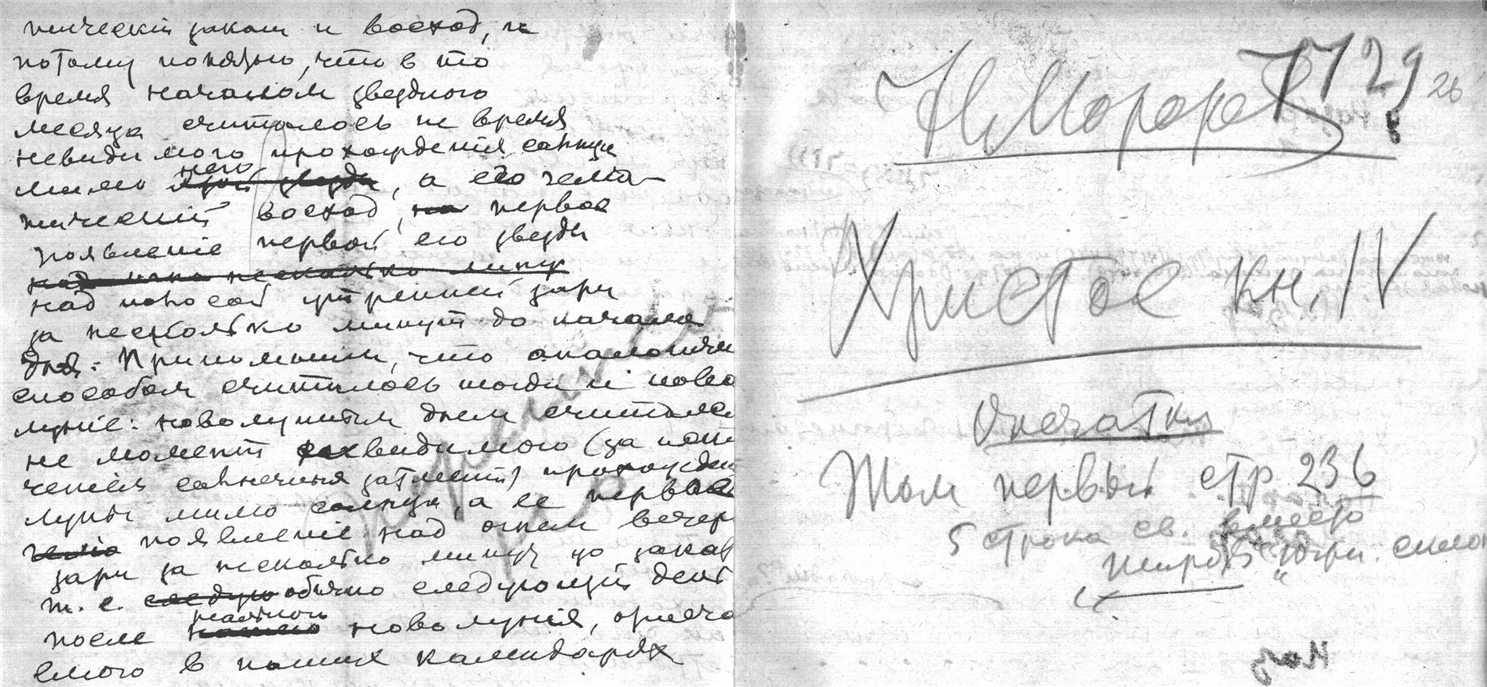 тический закат и восход, и
потому понятно, что в то
время началом звездного
месяца считалось не время
невидимого прохождения солнца
мимо него, а его гелиа-
тический восход, первое
появление первой его звезды
над полосой утренней зари
за несколько минут до начала
дня. Припомним, что аналогичн
способом считалось тогда и ново
луние: новолунным днем считался
не момент невидимого (за
солнечных затмений) прохожден
луны мимо солнца, а ее первое
появление над огнем вечер
зари за несколько минут до
т. е. обычно следующий день
после новолуния,
емого в наших календарях
Н. Морозов
1729
26
Христос кн. IV
Опечатки
Том первый стр 236
5 строка св. вместо